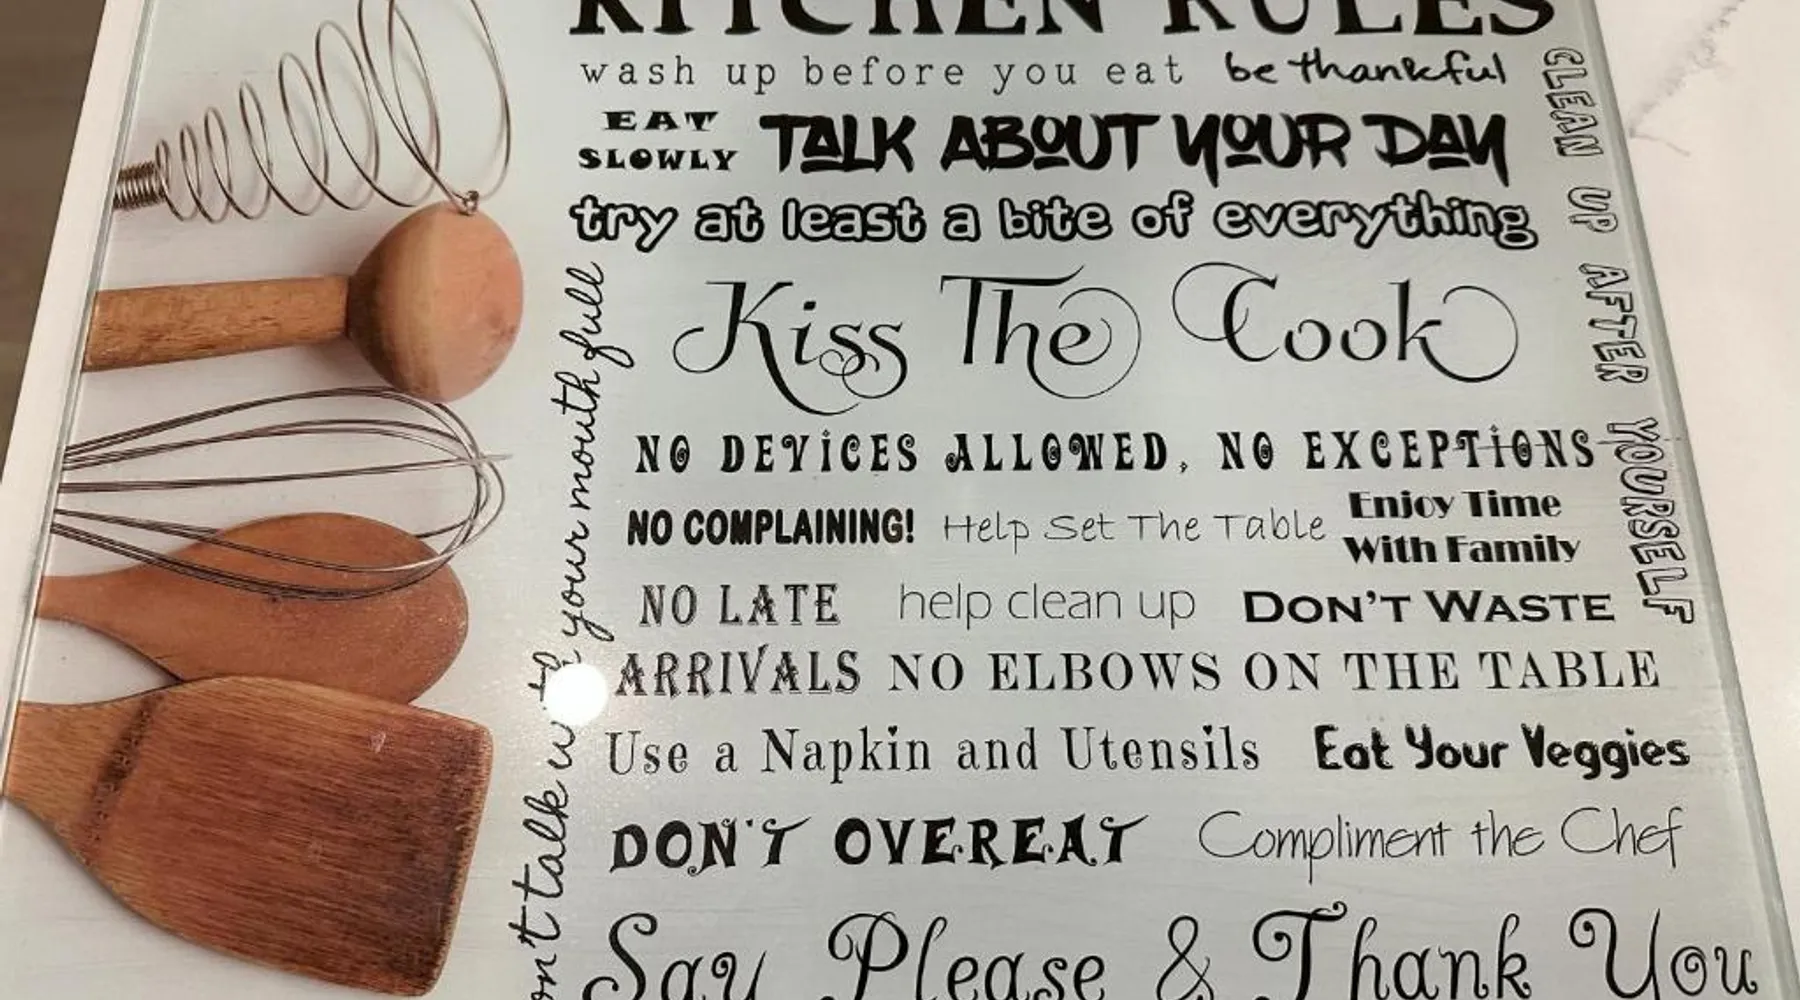 KITCHEN RULES
wash up before you eat be thankful
EAT SLOWLY TALK ABOUT YOUR DAY
try at least a bite of everything
Kiss The Cook
NO DEVICES ALLOWED, NO EXCEPTIONS
NO COMPLAINING! Help Set The Table Enjoy Time With Family
NO LATE ARRIVALS help clean up DON'T WASTE
NO ELBOWS ON THE TABLE
Use a Napkin and Utensils Eat Your Veggies
DON'T OVEREAT Compliment the Chef
Say Please & Thank You
talk with your mouth full
CLEAN UP AFTER YOURSELF